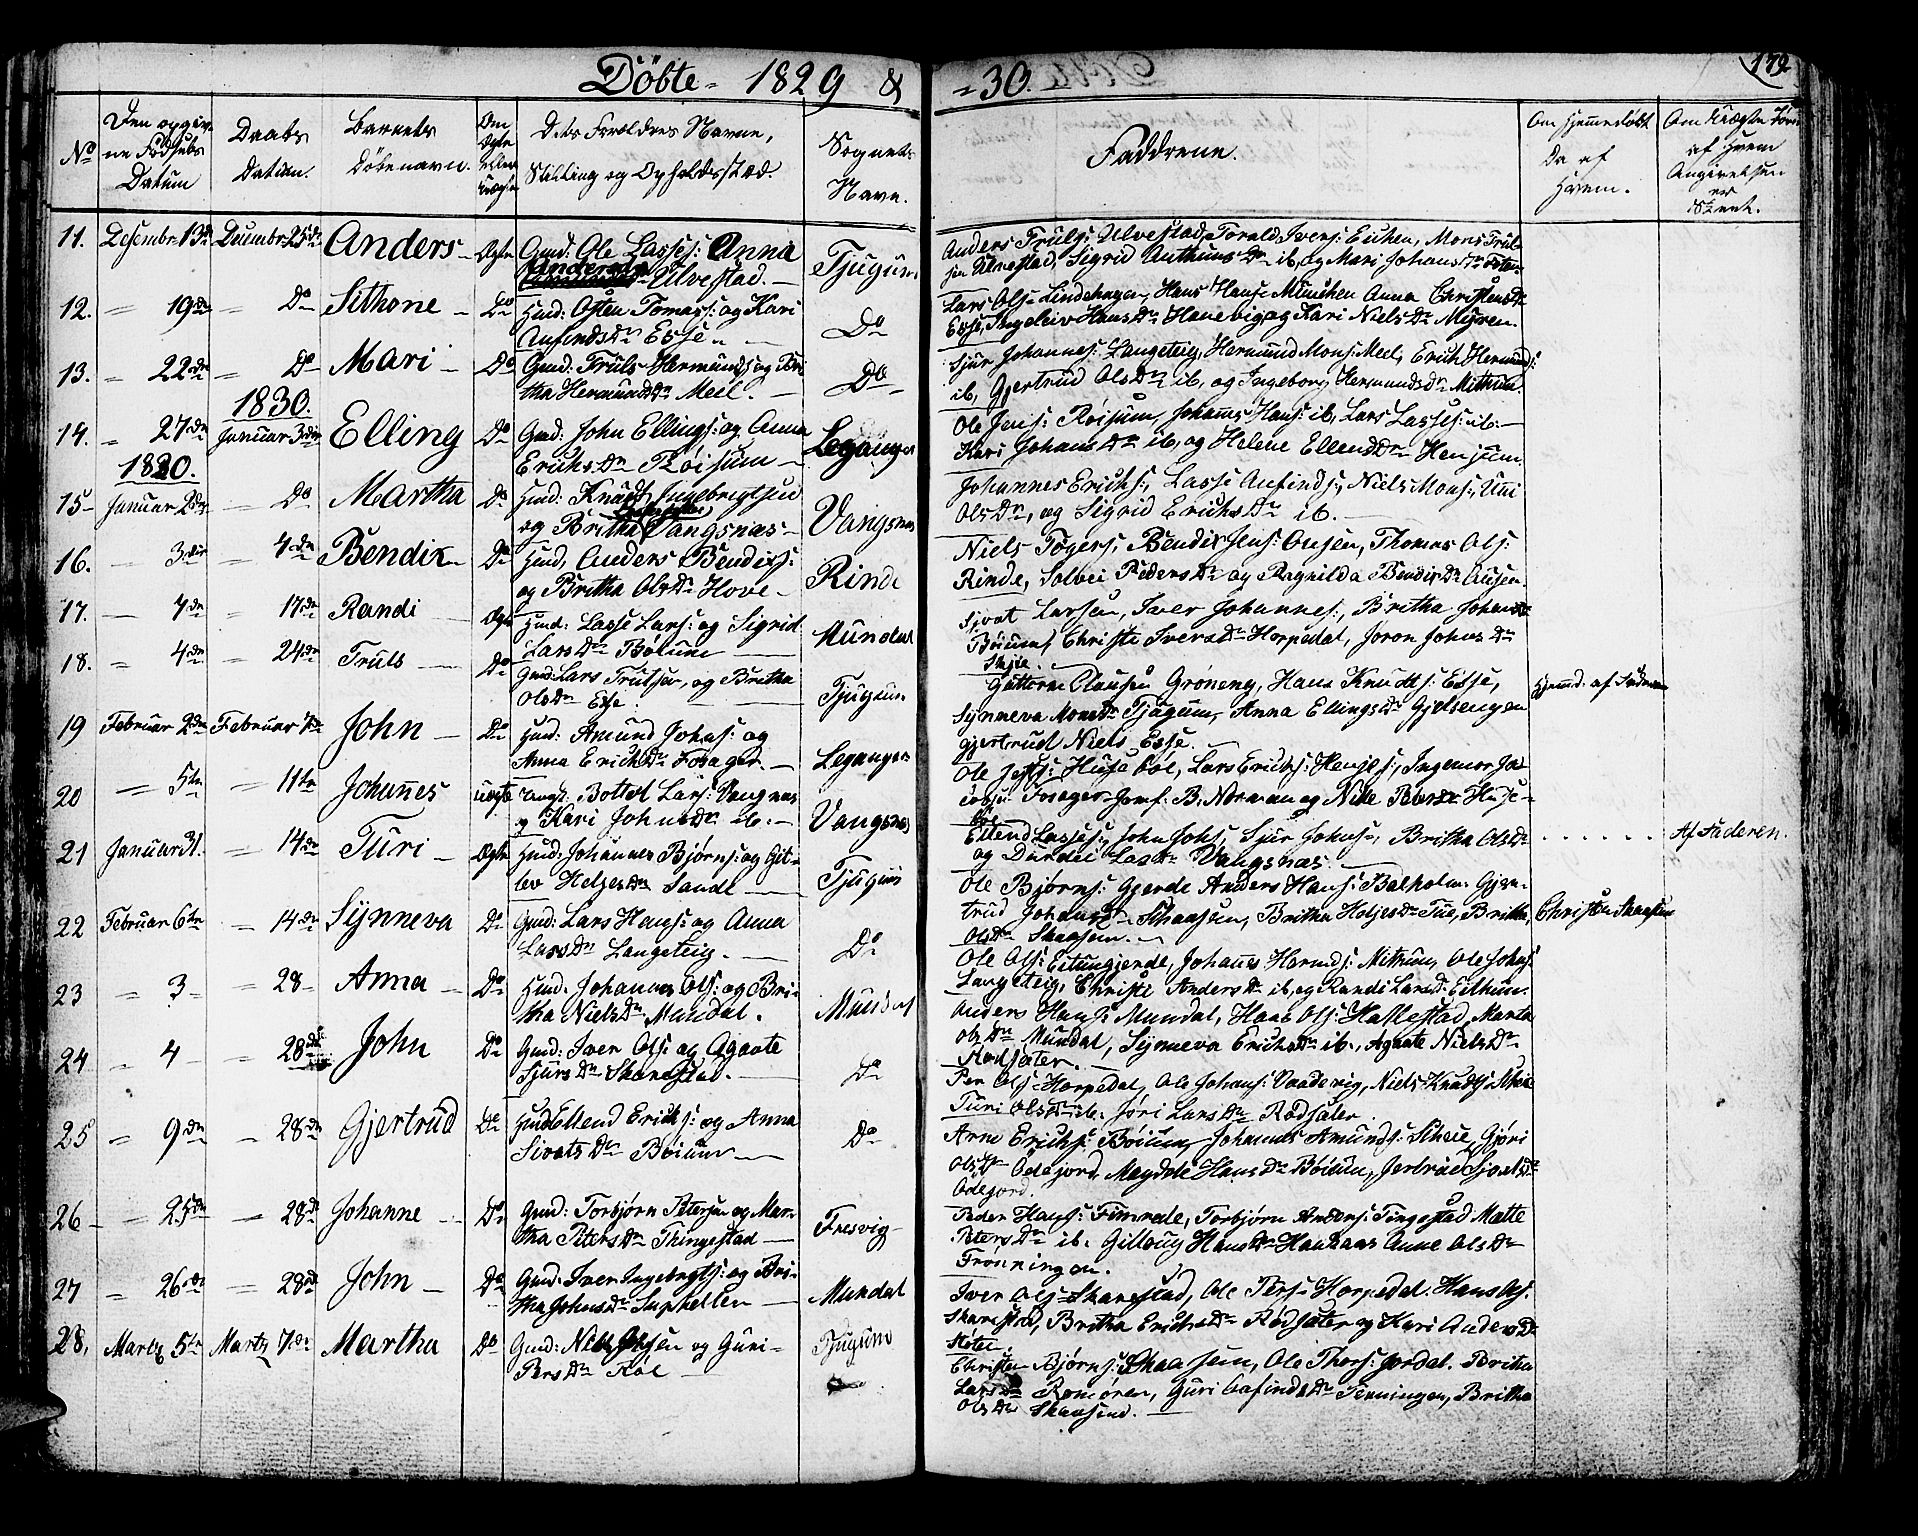 Döbte 1829 & 30.
179
No
Den opgiv-
ne Födsels
Datum
Daabs
Datum.
Barnets
Döbenavn.
Om
Ægte
eller
uægte
Dets Forældres Navne,
Stilling og Opholdssted.
Sognets
Navn.
Faddrene.
Om Hjemmedöbt
Da af
Hvem.
Om Uægte Född
af Hvem
Angivelsen
er
Skeet.
11. Desembr 13de Decembr 25de Anders Ægte Gmd: Ole Lasses: Anna
Andersdr Ulvestad. Tjugum
Anders Truls: Ulvestad, Torald Ivers: Eichen, Mons Trul-
sen Ulvestad, Sigrid Anthuns Dr ib, og Mari Johans Dr
12. 19de Do Sithone Do Hmd: Osten Tomas: og Kari
Anfinds Dr Esse Do
Lars Ols: Lindehagen, Hans Hans: München Anna Christens Dr
Esse, Ingeleiv Hans Dr Hanevig og Kari Niels Dr Myren.
13. 22de Do Mari Do Gmd: Truls Hermunds: og Bri
tha Hermunds Dr Meel. Do
Sjur Johannes: Langeteig, Hermund Mons: Meel, Erich Hermunds:
ib, Gjertrud Ols Dr ib, og Ingeborg Hermunds Dr Mithun
1830.
14. 27de Januar 3de Elling Do Gmd: John Ellings: og Anna
Erichs Dr Röisum Leganger
Ole Jens: Röisum, Johannes Hans: ib, Lars Lasses: ib.
Kari Johans Dr ib, og Helene Ellends Dr Henjum
1830.
15 Januar 2den Do Martha Do Hmd: Knudt Ingebrigtsen
og Britha Vangsnæs Vangsnæs
Johannes Erichs:, Lasse Anfinds:, Niels Mons:, Uni
Ols Dr, og Sigrid Erichs Dr ib.
16. 3die 4de Bendix Do Hmd, Anders Bendixs:
og Britha Ols Dr Hove Rinde
Niels Togers, Bendix Jens: Ousen, Thomas Ols:
Rinde, Solvei Peders Dr og Ragnilda Bendix Dr Ousen
17. 4de 17de Randi Ægte Hmd: Lasse Lars: og Sigrid
Lars Dr Böium Mundal
Sjvat Larsen, Iver Johannes:, Britha Johans Dr
Böium, Christi Ivers Dr Horpedal, Joron Johns Dr
Skjee.
18. 4de 24de Truls Do Gmd: Lars Trulsen, og Britha
Ols Dr Esse Tjugum
Guttorm Olausen Gröneng, Hans Knudts: Esse,
Synneva Mons Dr Tjugum, Anna Ellings Dr Gjelsengen
gjertrud Niels Esse.
Hjemd. af Faderen
19 Februar 2den Februar 7de John Do Hmd: Amund Johns: og
Anna Erichs Dr Fosager. Leganger
Ole Jens: Huseböe, Lars Erichs: Henjes:, Ingemor Ja-
cobs: Fosager Jomf: B. Norman og Nille Peters Dr Huse-
böe
20 5te 11te Johannes uægte Ungk. Bottol Lars: Vangsnæs
og Kari Johns Dr ib. Vangsnæs
Ellend Lasses:, John Johs: Sjur Johns:, Britha Ols Dr
og Durdei Las Dr Vangsnæs.
Af Faderen.
21 Januar 31. 14de Turi Ægte Hmd: Johannes Bjørns: og Git-
lev Heljes Dr Sande Tjugum
Ole Bjørns: Gjerde Anders Hans: Balholm, Gjer-
trud Johans Dr Skaasen, Britha Holjes Dr Tue, Britha
Ols Dr Skaasem.
Christen Skaasem
22 Februar 6te 14de Synneva Do Gmd: Lars Hans: og Anna
Lars Dr Langeteig. Do
Ole Ols: Eitungjerde, Johannes Hermds: Mitrum, Ole Johns:
Langeteig, Christi Anders Dr ib, og Randi Lars Dr Eithun.
23 3 28 Anna Do Hmd: Johannes Ols: og Bri-
tha Niels Dr Mundal. Mundal
Anders Hans: Mundal, Hans Ols: Hallestad, Marta
Ols Dr Mundal, Synneva Erichs Dr ib., Agaate Niels Dr
Rödsæter.
24 4 28de John Do Gmd: Iver Ols: og Agaate
Sjurs Dr Skarestad. Do
Per Ols: Horpedal, Ole Johans: Vaadevig, Niels Knudts: Skeie
Turi Ols Dr ib. Jöri Lars Dr Rödsæter.
25 9de 28de Gjertrud Do Hmd Ellend Erichs: og Anna
Sivats Dr Böium Do
Arne Erichs: Böium, Johannes Amunds: Skeie, Gjöri
Ols Dr Ödegjord, Magdele Hans Dr Böium, Jertrud Sjvats Dr
Ödegjord.
26 25de 28de Johanne Do Gmd: Torbjørn Petersen og Mar-
tha Peters Dr Thingestad Fresvig
Peder Hans: Fimrede, Torbjørn Anders: Tingestad Mætte
Peters Dr ib. Gillaug Hans Dr Hanhaas Anne Ols Dr
Frönningen.
27 26de 28de John Do Gmd: Iver Ingebrigts: og Bri-
tha Johns Dr Suphellen Mundal
Iver Ols: Skarestad, Ole Pers: Horpedal. Hans Ols:
Skarestad, Britha Erichs Dr Rödsæter og Kari Anders Dr
28, Martz 5te Martz 7de Martha Do Gmd: Niels Olsen og Guri
Pers Dr Tjugum
Christen Bjørns: Skaasem, Ole Thors: Jordal. Britha
Lars Dr Romören, Guri Anfinds Dr Fenningen, Britha
Ols Dr Skaasend.